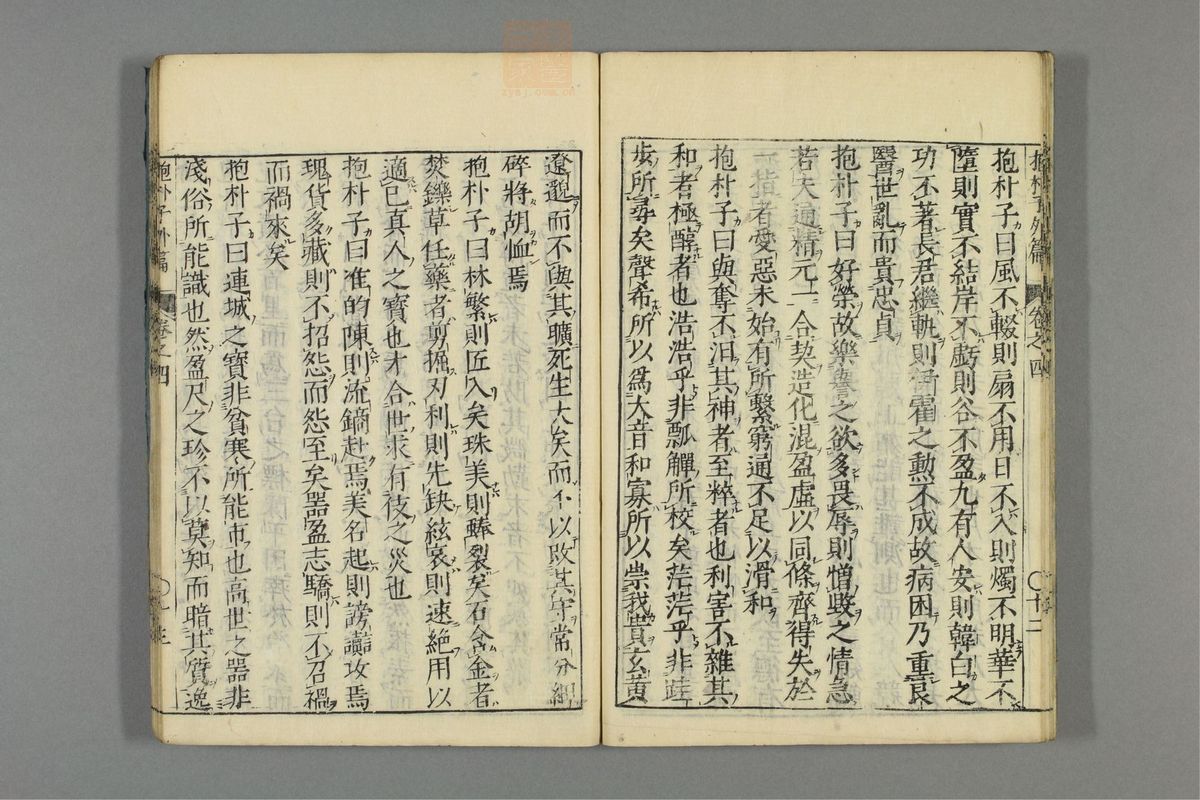 抱朴子曰風不輟則扇不用日不入則燭不明華不
墮則實不結岸不虧則谷不盈九有人安則韓白之
功不著長君繼軌則伊霍之勲不成故病困乃重良
醫世亂而貴忠貞
抱朴子曰好榮故樂譽之欲多畏辱則憎毀之情急
若夫通精元一合契造化混盈虛以同條齊得失於
一指者愛惡未始有所繫窮通不足以滑和
抱朴子曰與奪不汨其神者至粹者也利害不雜其
和者極醇者也浩浩乎非瓢觶所校矣茫茫乎非跬
步所尋矣聲希所以爲大音和寡所以崇我貴玄黃
遼邈而不與其曠死生大矣而不以改其守常分細
碎將胡恤焉
抱朴子曰林繁則匠入矣珠美則蚌裂矣石含金者
焚鑠草任藥者剪掘刃利則先缺絃哀則速絶用以
適己真人之寶也才合世求有伎之災也
抱朴子曰准的陳則流鏑赴焉美名起則謗讟攻焉
瑰貨多藏則不招怨而怨至矣器盈志驕則不召禍
而禍來矣
抱朴子曰連城之寶非貧寒所能市也高世之器非
淺俗所能識也然盈尺之珍不以莫知而暗其質逸
抱朴子外篇
卷之四
〇十二
抱朴子外篇
卷之四
zysj.com.cn